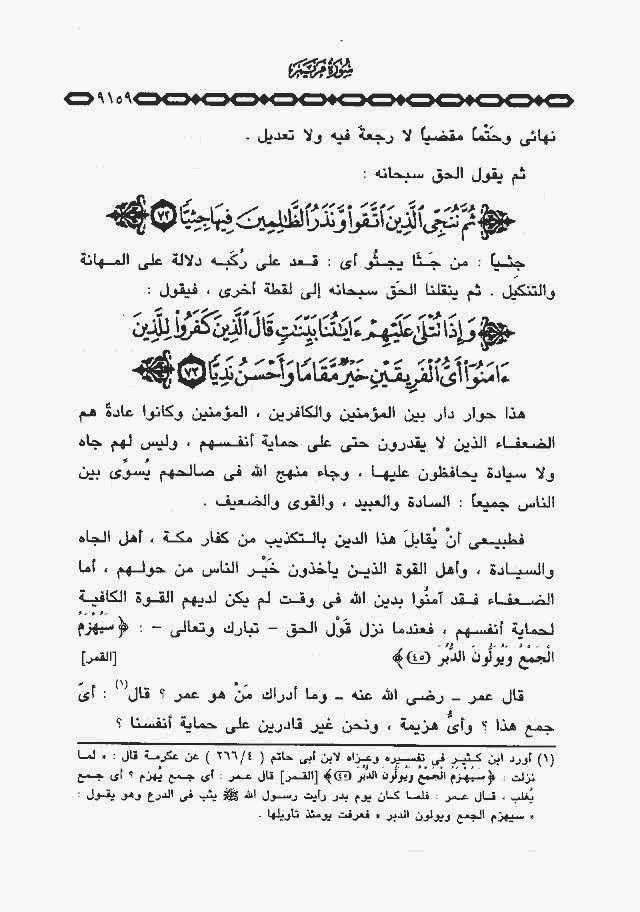 سُورَةُ مَرْيَم
٩١٥٩
نهائى وحَتْماً مقضياً لا رجعةَ فيه ولا تعديل .
ثم يقول الحق سبحانه :
ثُمَّ نُنَجِّى ٱلَّذِينَ ٱتَّقَوا۟ وَّنَذَرُ ٱلظَّـٰلِمِينَ فِيهَا جِثِيًّا ٧٢
جِثياً : من جَثَا يجثُو أى : قعد على رُكَبه دلالة على المهانة
والتنكيل . ثم ينقلنا الحق سبحانه إلى لقطة أخرى ، فيقول :
وَإِذَا تُتْلَىٰ عَلَيْهِمْ ءَايَـٰتُنَا بَيِّنَـٰتٍ قَالَ ٱلَّذِينَ كَفَرُوا۟ لِلَّذِينَ
ءَامَنُوٓا۟ أَىُّ ٱلْفَرِيقَيْنِ خَيْرٌ مَّقَامًا وَأَحْسَنُ نَدِيًّا ٧٣
هذا حوار دار بين المؤمنين والكافرين ، المؤمنين وكانوا عادةً هم
الضعفاء الذين لا يقدرون حتى على حماية أنفسهم ، وليس لهم جاه
ولا سيادة يحافظون عليها ، وجاء منهج الله فى صالحهم يُسوِّى بين
الناس جميعاً : السادة والعبيد ، والقوى والضعيف .
فطبيعى أنْ يُقابلَ هذا الدين بالتكذيب من كفار مكة ، أهل الجاه
والسيادة ، وأهل القوة الذين يأخذون خَيْر الناس من حولهم ، أما
الضعفاء فقد آمنُوا بدين الله فى وقت لم يكن لديهم القوة الكافية
لحماية أنفسهم ، فعندما نزل قَوْل الحق – تبارك وتعالى – : ﴿ سَيُهْزَمُ
الْجَمْعُ وَيُوَلُّونَ الدُّبُرَ (٤٥) ﴾ [القمر]
قال عمر – رضى الله عنه – وما أدراك مَنْ هو عمر ؟ قال(١) : أىّ
جمع هذا ؟ وأىُّ هزيمة ، ونحن غير قادرين على حماية أنفسنا ؟
(١) أورد ابن كثير فى تفسيره وعزاه لابن أبى حاتم ( ٢٦٦/٤ ) عن عكرمة قال : « لما
نزلت : ﴿ سَيُهْزَمُ الْجَمْعُ وَيُوَلُّونَ الدُّبُرَ (٤٥) ﴾ [القمر] قال عمر : أى جمع يُهزم ؟ أى جمع
يُغلب ، قال عمر : فلما كان يوم بدر رأيت رسول الله ﷺ يثب فى الدرع وهو يقول :
« سيهزم الجمع ويولون الدبر » فعرفت يومئذ تأويلها .